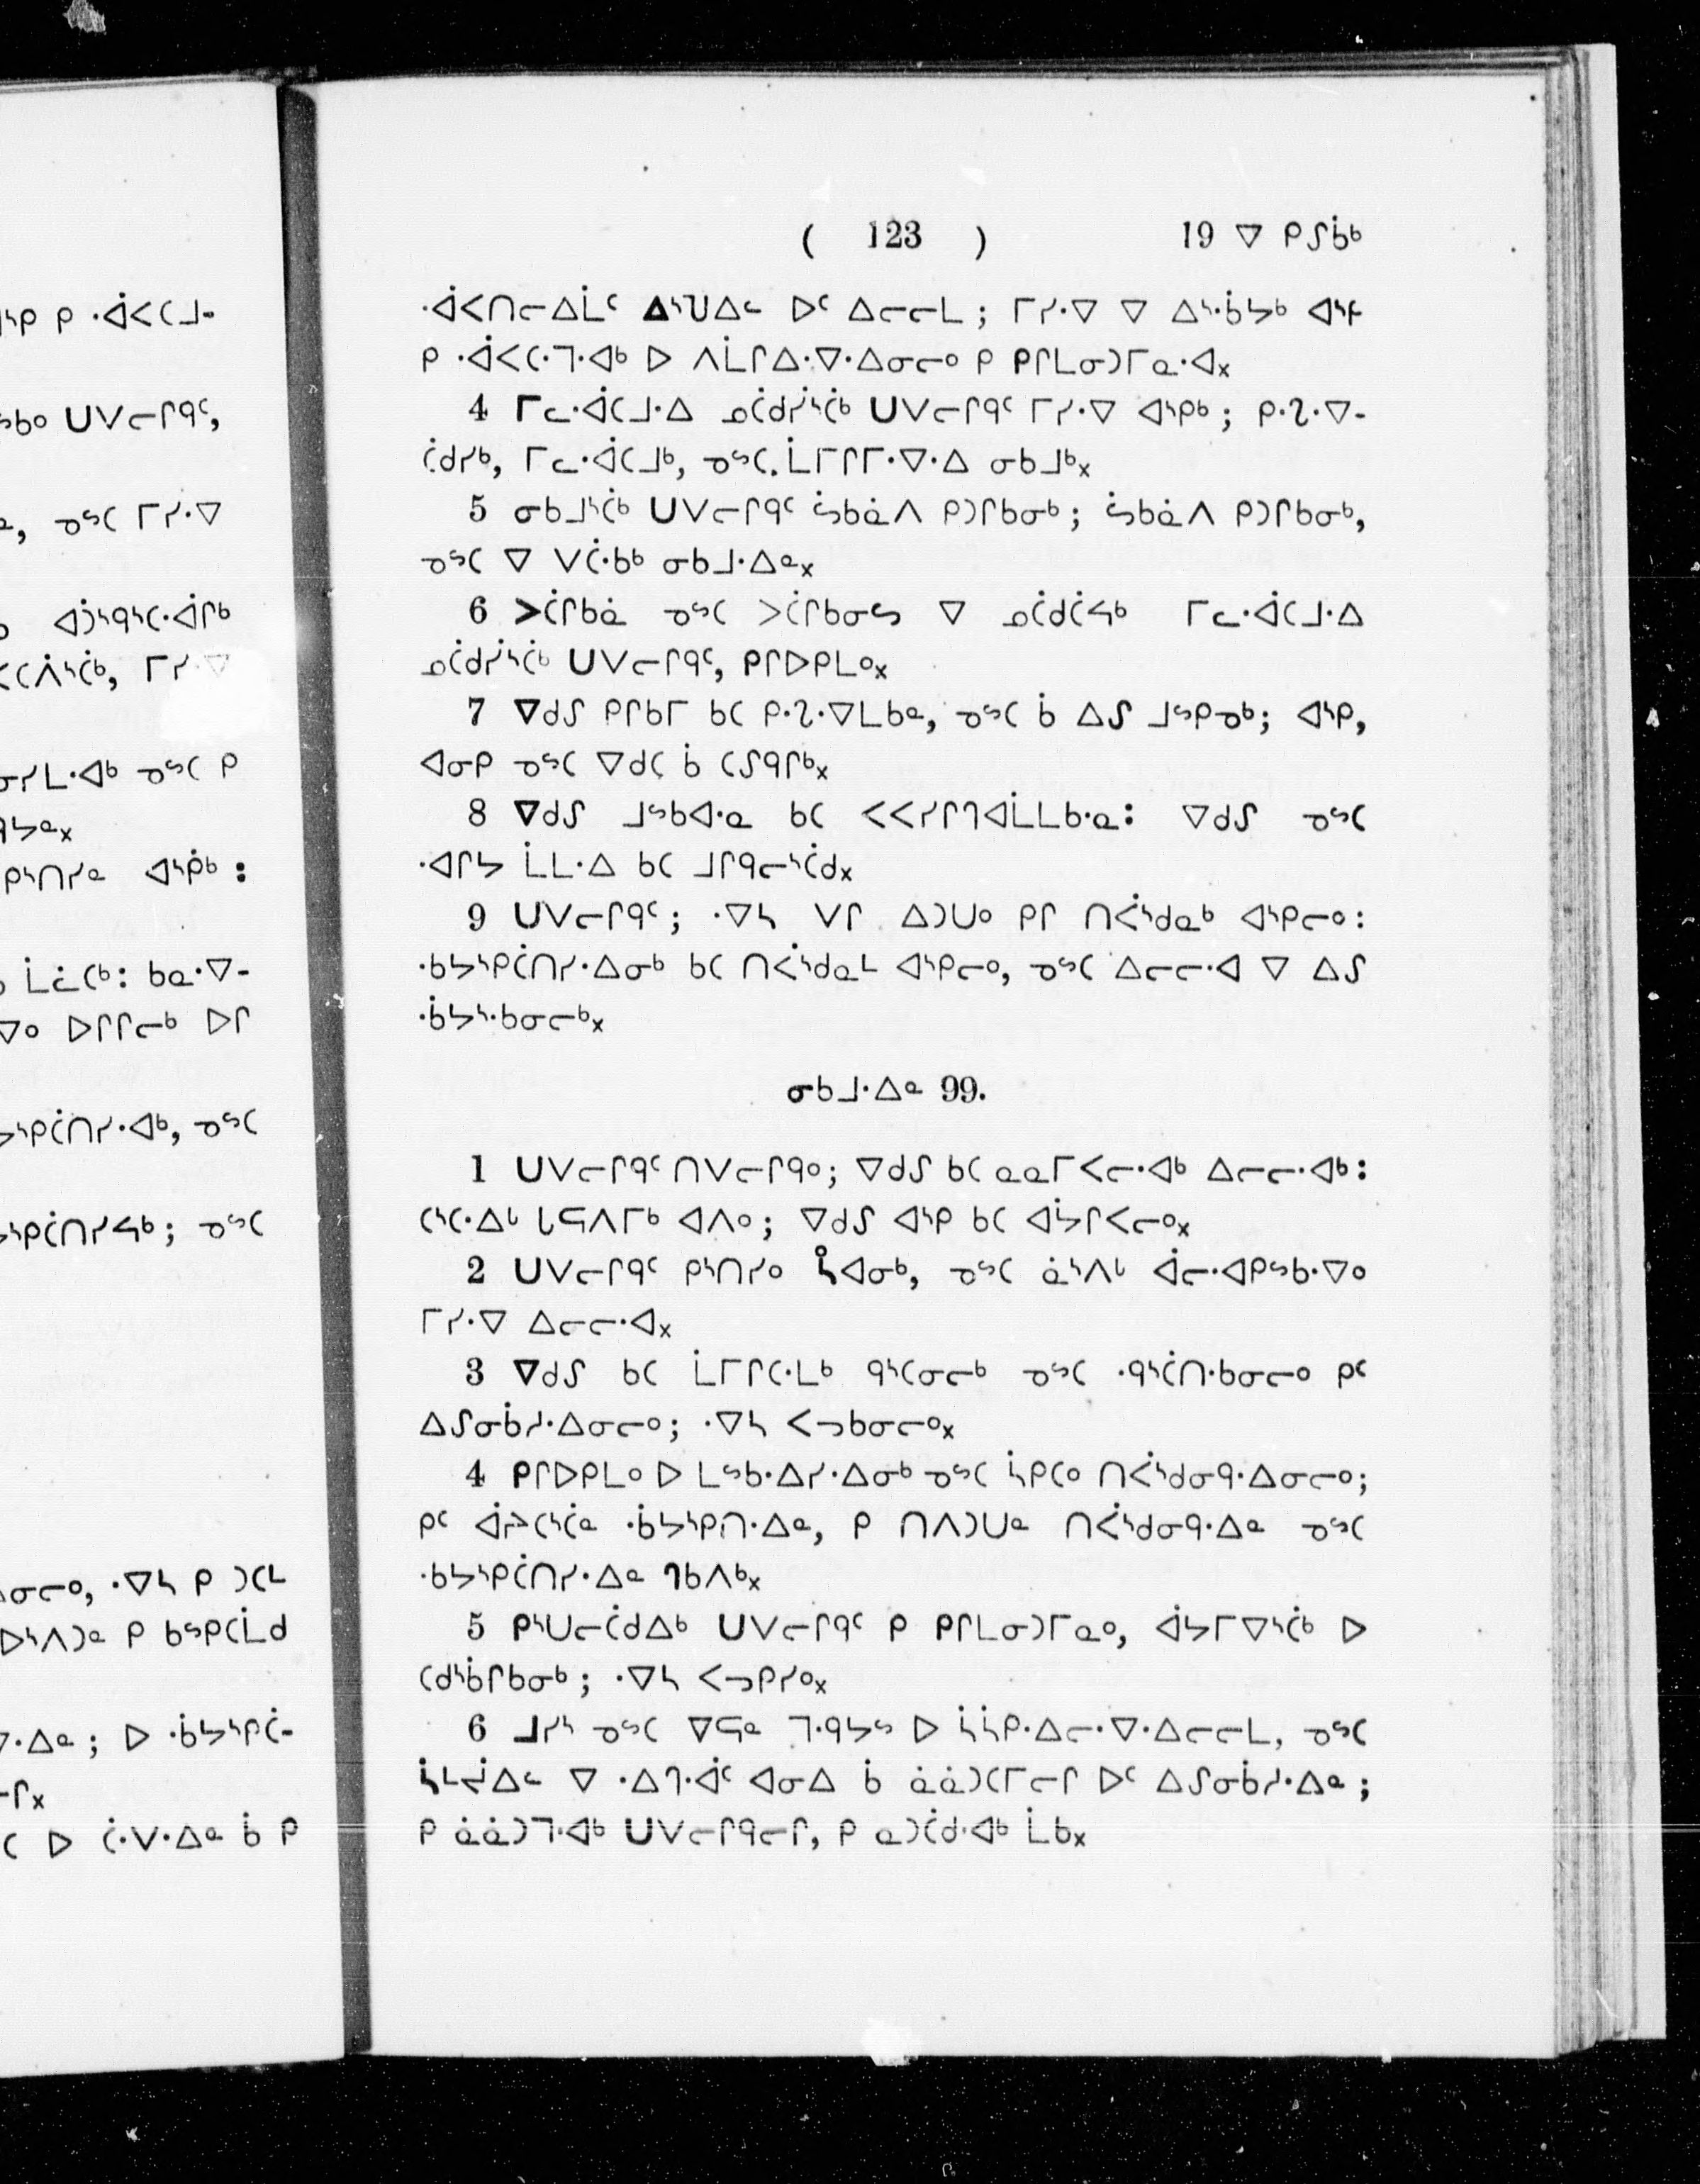 ( 123 ) 19 ᐁ ᑭᔑᑳᒃ
ᐧᐋᐸᑎᓕᐃᒫᑦ ᐃᔅᘮᐃᓪ ᐅᑦ ᐃᓕᓕᒪ; ᒥᓯᐧᐁ ᐁ ᐃᔅᐧᑳᔭᒃ
ᑭ ᐧᐋᐸᑕᐧᒣᐧᐊᒃ ᐅ ᐱᒫᒋᐃᐧᐁᐧᐃᓂᓕᐤ ᑭ ᑭᒋᒪᓂᑐᒥᓇᐧᐊ᙮
4 ᒥᓚᐧᐋᑕᒧᐧᐃ ᓄᑖᑯᓰᔅᑖᒃ ᑌᐯᓕᒋᑫᑦ ᒥᓯᐧᐁ ᐊᔅᑭᒃ; ᑭᐧᔐᐧᐁ-
ᑖᑯᓯᒃ, ᒥᓚᐧᐋᑕᒧᒃ, ᓀᔥᑕ ᒫᒥᒋᒥᐧᐁᐧᐃ ᓂᑲᒧᒃ᙮
5 ᓂᑲᒧᔅᑖᒃ ᑌᐯᓕᒋᑫᑦ ᔖᑲᓈᐱ ᑭᑐᒋᑲᓂᒃ; ᔖᑲᓈᐱ ᑭᑐᒋᑲᓂᒃ,
ᓀᔥᑕ ᐁ ᐯᑖᐧᑲᒃ ᓂᑲᒧᐧᐃᓐ᙮
6 ᐳᑖᒋᑲᓈ ᓀᔥᑕ ᐳᑖᒋᑲᓂᔕ ᐁ ᓄᑖᑯᑖᔦᒃ ᒥᓚᐧᐋᑕᒧᐧᐃ
ᓄᑖᑯᓰᔅᑖᒃ ᑌᐯᓕᒋᑫᑦ, ᑭᒋᐅᑭᒪᐤ᙮
7 ᐁᑯᔑ ᑭᒋᑲᒥ ᑲᑕ ᑭᐧᔐᐧᐁᒪᑲᓐ, ᓀᔥᑕ ᑳ ᐃᔑ ᒧᔥᑭᓀᒃ; ᐊᔅᑭ,
ᐊᓂᑭ ᓀᔥᑕ ᐁᑯᑕ ᑳ ᑕᔑᑫᒋᒃ᙮
8 ᐁᑯᔑ ᒧᔥᑲᐊᐧᓇ ᑲᑕ ᐸᐸᓯᒋᒉᐊᒫᒪᑲᐧᓇ: ᐁᑯᔑ ᓀᔥᑕ
ᐧᐊᒋᔭ ᒫᒪᐧᐃ ᑲᑕ ᒧᒋᑫᓕᔅᑖᑯ᙮
9 ᑌᐯᓕᒋᑫᑦ; ᐧᐁᓴ ᐯᒋ ᐃᑐᑌᐤ ᑭᒋ ᑎᐹᔅᑯᓇᒃ ᐊᔅᑭᓕᐤ:
ᐧᑲᔭᔅᑭᑖᑎᓯᐧᐃᓂᒃ ᑲᑕ ᑎᐹᔅᑯᓇᒻ ᐊᔅᑭᓕᐤ, ᓀᔥᑕ ᐃᓕᓕᐧᐊ ᐁ ᐃᔑ
ᐧᑳᔭᔅᐧᑲᓂᓕᒃ᙮
ᓂᑲᒧᐧᐃᓐ 99.
1 ᑌᐯᓕᒋᑫᑦ ᑎᐯᓕᒋᑫᐤ; ᐁᑯᔑ ᑲᑕ ᓇᓇᒥᐸᓕᐧᐊᒃ ᐃᓕᓕᐧᐊᒃ:
ᑕᔅᑕᐧᐃᒡ ᒐᕃᐱᒥᒃ ᐊᐱᐤ; ᐁᑯᔑ ᐊᔅᑭ ᑲᑕ ᐊᔮᒋᐸᓕᐤ᙮
2 ᑌᐯᓕᒋᑫᑦ ᑭᔅᑎᓯᐤ ᓵᐊᓂᒃ, ᓀᔥᑕ ᓈᔅᐱᒡ ᐋᓕᐧᐊᑭᔥᑲᐧᐁᐤ
ᒥᓯᐧᐁ ᐃᓕᓕᐧᐊ᙮
3 ᐁᑯᔑ ᑲᑕ ᒫᒥᒋᑕᐧᒪᒃ ᑫᔅᑕᓂᓕᒃ ᓀᔥᑕ ᐧᑫᔅᑖᑎᐧᑲᓂᓕᐤ ᑭᑦ
ᐃᔑᓂᑳᓱᐧᐃᓂᓕᐤ; ᐧᐁᓴ ᐸᓓᑲᓂᓕᐤ᙮
4 ᑭᒋᐅᑭᒪᐤ ᐅ ᒪᔥᑲᐧᐃᓯᐧᐃᓂᒃ ᓀᔥᑕ ᓵᑭᑕᐤ ᑎᐹᔅᑯᓂᑫᐧᐃᓂᓕᐤ;
ᑭᑦ ᐋᔨᑕᔅᑖᓐ ᐧᑳᔭᔅᑭᑎᐧᐃᓐ, ᑭ ᑎᐱᑐᑌᓐ ᑎᐹᔅᑯᓂᑫᐧᐃᓐ ᓀᔥᑕ
ᐧᑲᔭᔅᑭᑖᑎᓯᐧᐃᓐ ᒉᑲᐱᒃ᙮
5 ᑭᔅᑌᓕᑖᑯᐃᒃ ᑌᐯᓕᒋᑫᑦ ᑭ ᑭᒋᒪᓂᑐᒥᓇᐤ, ᐋᔭᒥᐁᔅᑖᒃ ᐅ
ᑕᑯᔅᑳᒋᑲᓂᒃ; ᐧᐁᓴ ᐸᓓᑭᓯᐤ᙮
6 ᒧᓯᔅ ᓀᔥᑕ ᐁᕃᓐ ᒣᐧᑫᔭᔥ ᐅ ᓵᓵᑭᐧᐃᓕᐧᐁᐧᐃᓕᓕᒪ, ᓀᔥᑕ
ᓵᒻᔫᐃᓪ ᐁ ᐧᐃᒉᐧᐋᑦ ᐊᓂᐃ ᑳ ᓈᓈᑐᑕᒥᓕᒋ ᐅᑦ ᐃᔑᓂᑳᓱᐧᐃᓐ;
ᑭ ᓈᓈᑐᒣᐧᐊᒃ ᑌᐯᓕᒋᑫᓕᒋ, ᑭ ᓇᑐᑖᑯᐧᐊᒃ ᒫᑲ᙮